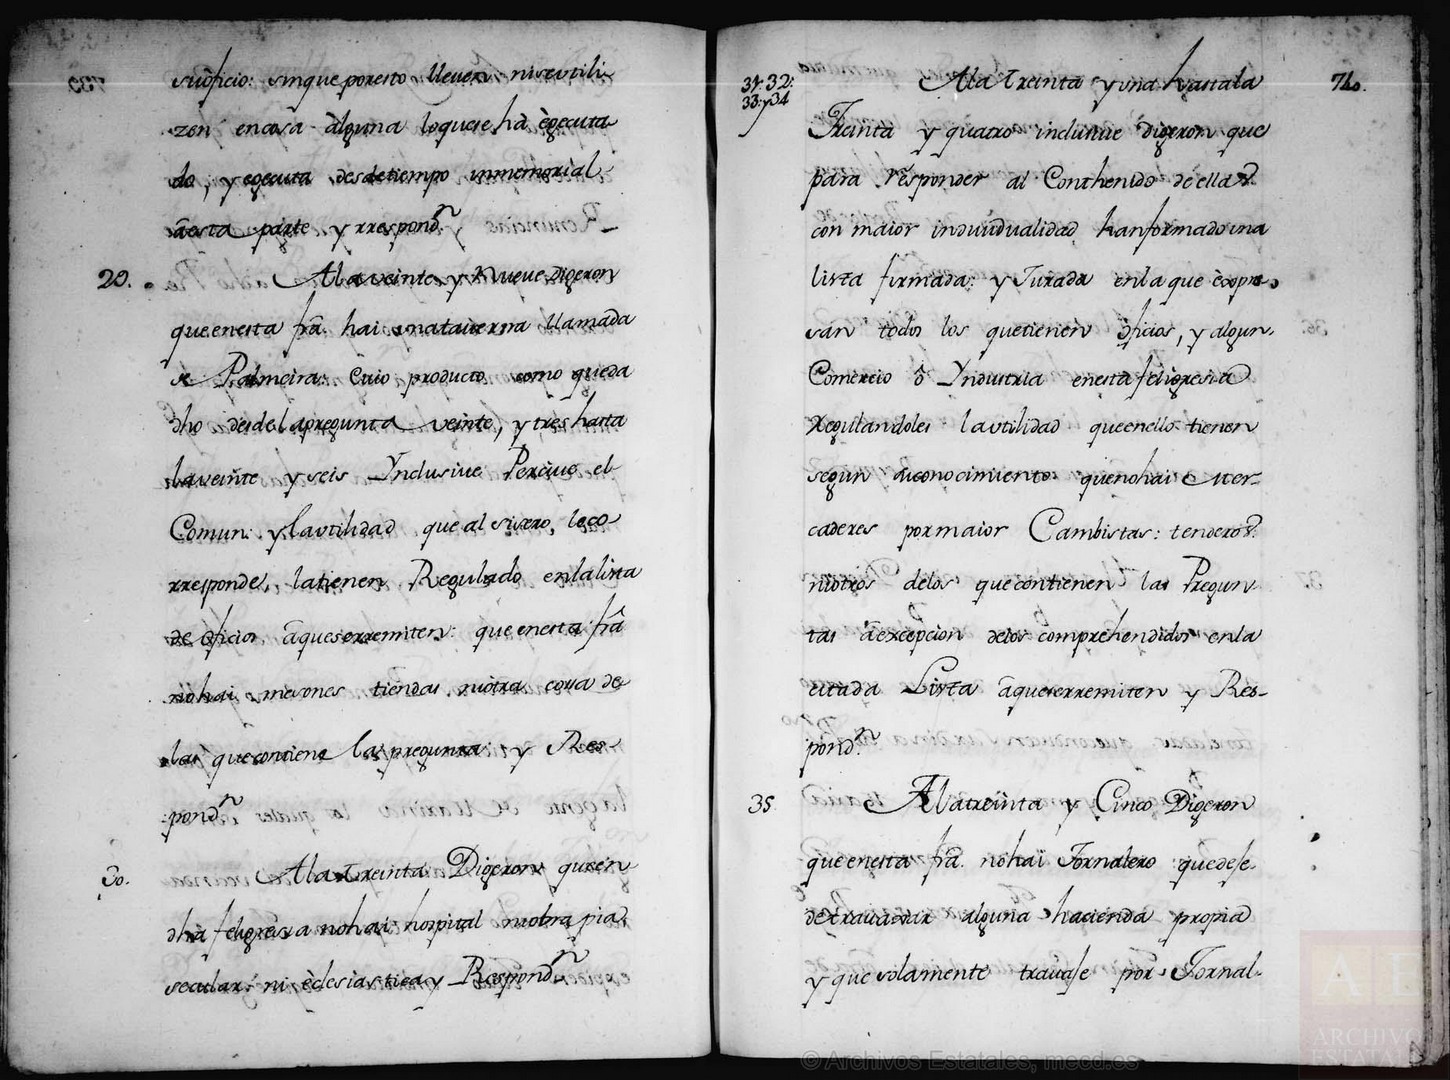 suoficio: sinque poresto lleven niseutili-
zen encosa alguna loquese hà ègecuta-
do, y egecuta desdetiempo inmemorial
àesta parte y rrespondn
29. Ala veinte y Nueve Digeron
que enesta frâ. hai una taverna llamada
de Palmeira: Cuio producto como queda
dho desdelapregunta veinte, y tres hasta
laveinte y seis Ynclusive Percive el
Comun: y lautilidad que al sisero, leco-
rresponde, latienen Regulado enlalista
de oficios âqueserremiten: que enesta frâ
nohai mesones tiendas niotra cosa de
las quecontiene las preguntas y Res-
pondn
30. Ala treinta Digeron queen
dha feligresia nohai hospital niobra pia
secular: ni èclesiastica y Respondn
31. 32: Ala treinta y una hastala 740.
33: y 34 Treinta y quatro inclusive digeron que
para responder al Conthenido de ellas
con maior induvidualidad hanformado una
lista firmada: y Jurada enlaque èxpre-
san todos los quetienen oficios, y algun
Comercio ô Yndustria enesta feligresia
Regulandoles lautilidad queenello tienen
segun suconocimiento: quenohai Mer-
caderes pormaior Cambistas: tenderos
niotros delos quecontienen las Pregun-
tas âexcepcion delos comprehendidos enla
citada Lista âqueserremiten y Res-
pondn
35. Alatreinta y Cinco Digeron
que enesta frâ. nohai Jornalero quedefe
detravaxar alguna hacienda propia
y que solamente travafe por Jornal-
© Archivos Estatales, mecd.es
AE
ARCHIVO
ESTATAL